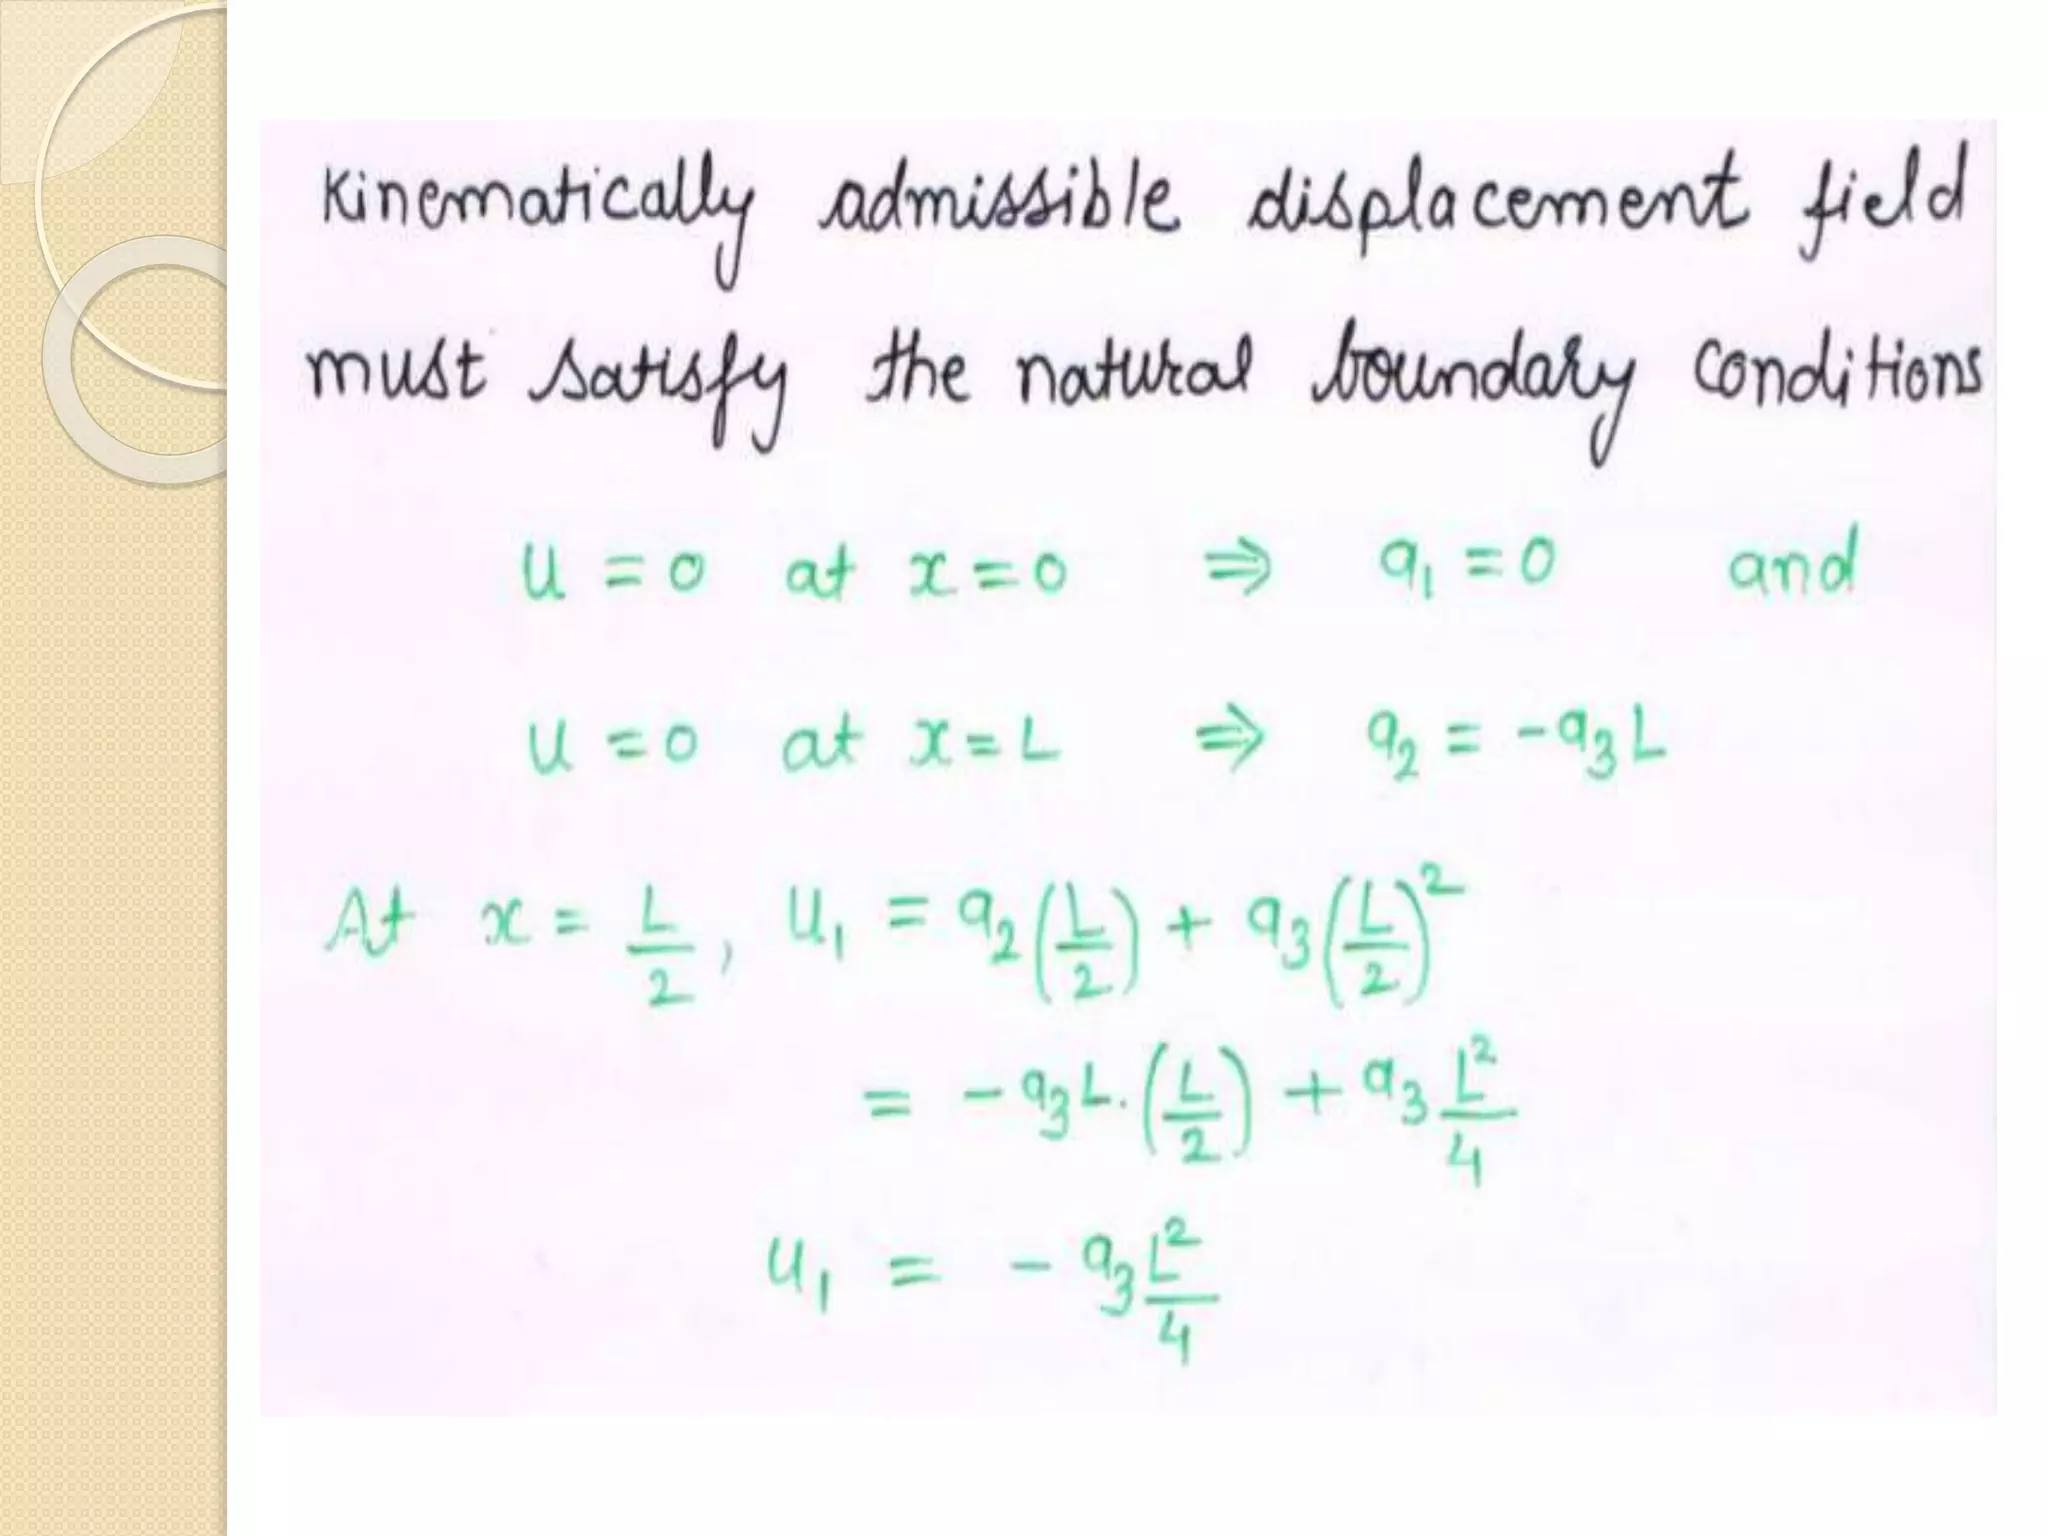 Kinematically admissible displacement field
must satisfy the natural boundary conditions
u = 0 at x = 0 ⇒ a₁ = 0 and
u = 0 at x = L ⇒ a₂ = -a₃L
At x = L/2, u₁ = a₂(L/2) + a₃(L/2)²
= -a₃L.(L/2) + a₃ L²/4
u₁ = -a₃ L²/4